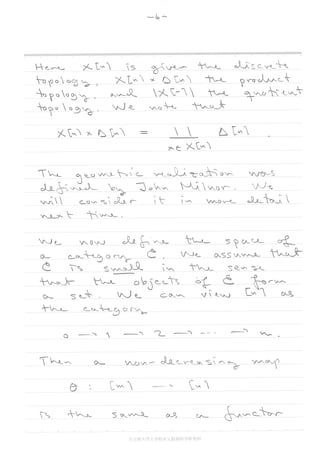 —6—
Here X[n] is given the discrete
topology, X[n] × Δ[n] the product
topology, and |X[-]| the quotient
topology. We note that
X[n] × Δ[n] = ∐ Δ[n].
x∈X[n]
The geometric realization was
defined by John Milnor. We
will consider it in more detail
next time.
We now define the space of
a category C. We assume that
C is small in the sense
that the objects of C form
a set. We can view [n] as
the category
0 → 1 → 2 → ⋯ → n.
Then a non-decreasing map
θ : [m] → [n]
is the same as a functor